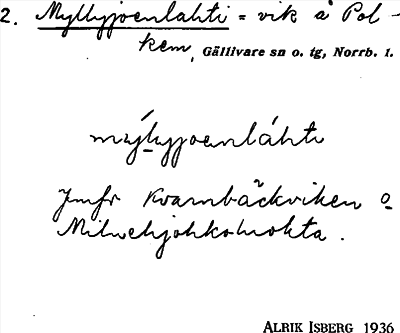 2. Myllyjoenlahti = vik å Pol-
kem, Gällivare sn o. tg, Norrb. l.
mýllyjoenláhti
Jmfr Kvarnbäckviken o
Milnehjohkoluokta.
ALRIK ISBERG 1936